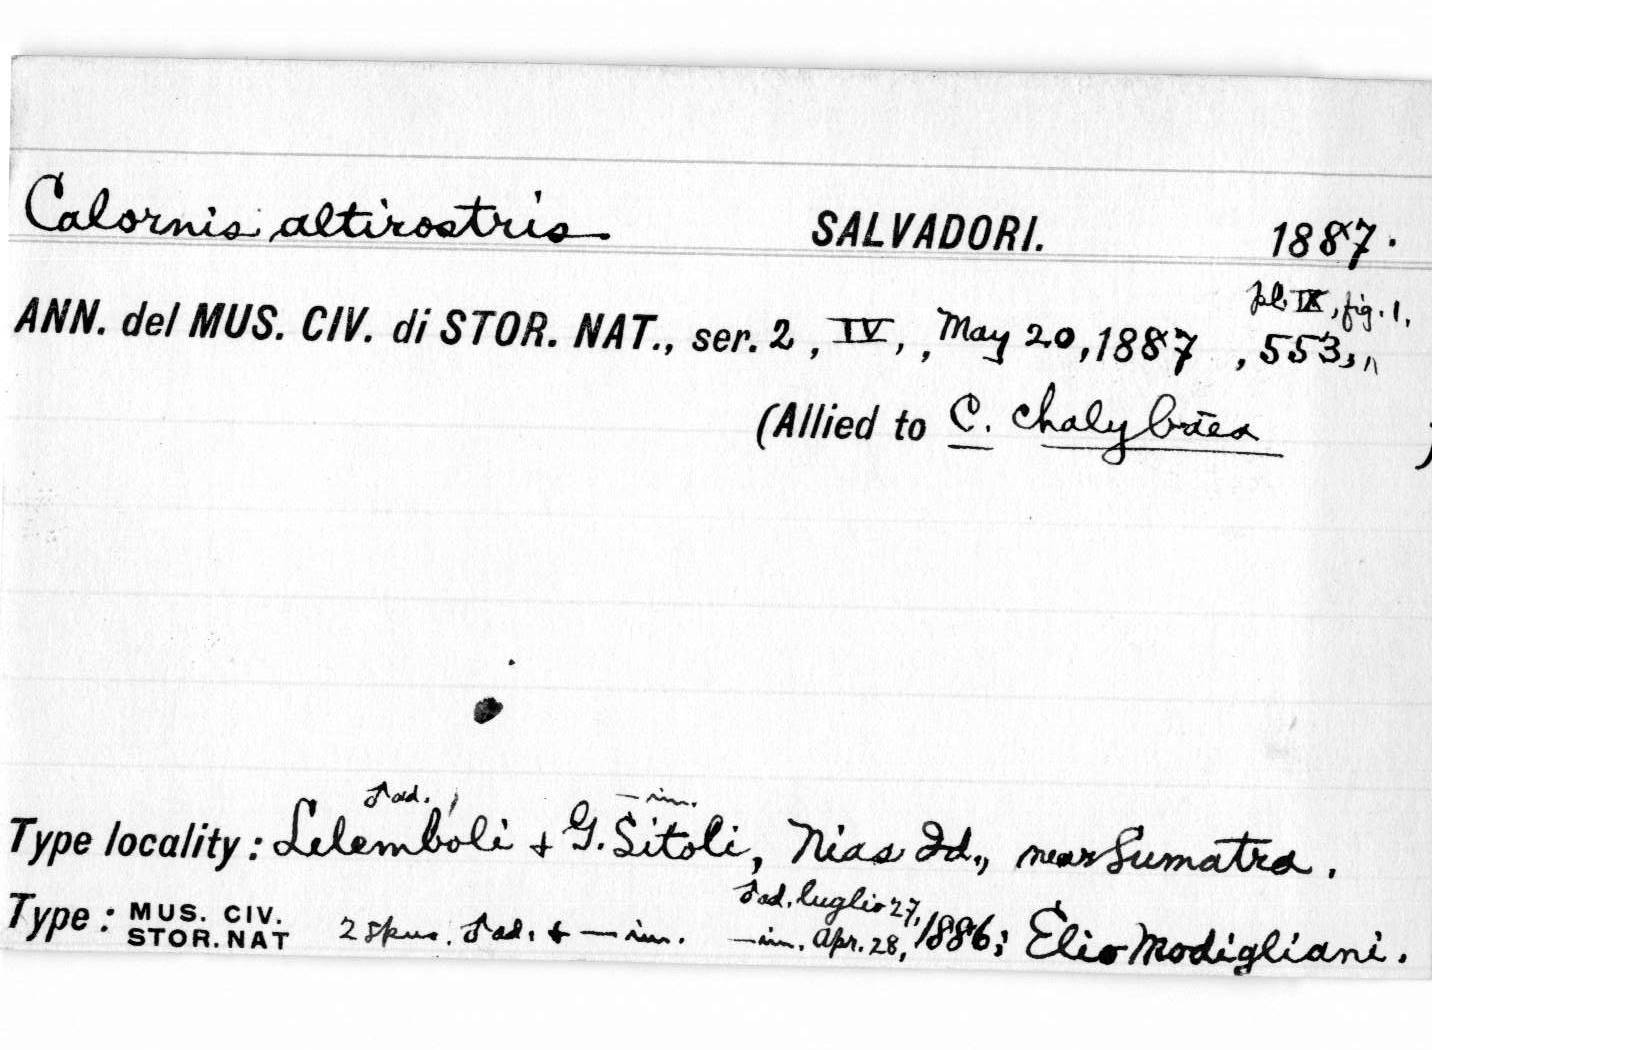 Calornis altirostris SALVADORI. 1887.
pl. IX, fig. 1.
ANN. del MUS. CIV. di STOR. NAT., ser. 2, IV, , May 20, 1887 , 553,
(Allied to C. chalybæa )
♂ad. — im.
Type locality: Lelemboli + G. Sitoli, Nias Id., near Sumatra.
♂ad. luglio 27,
Type: MUS. CIV. STOR. NAT 2 spms. ♂ad. + — im. — im. Apr. 28, 1886; Elio Modigliani.